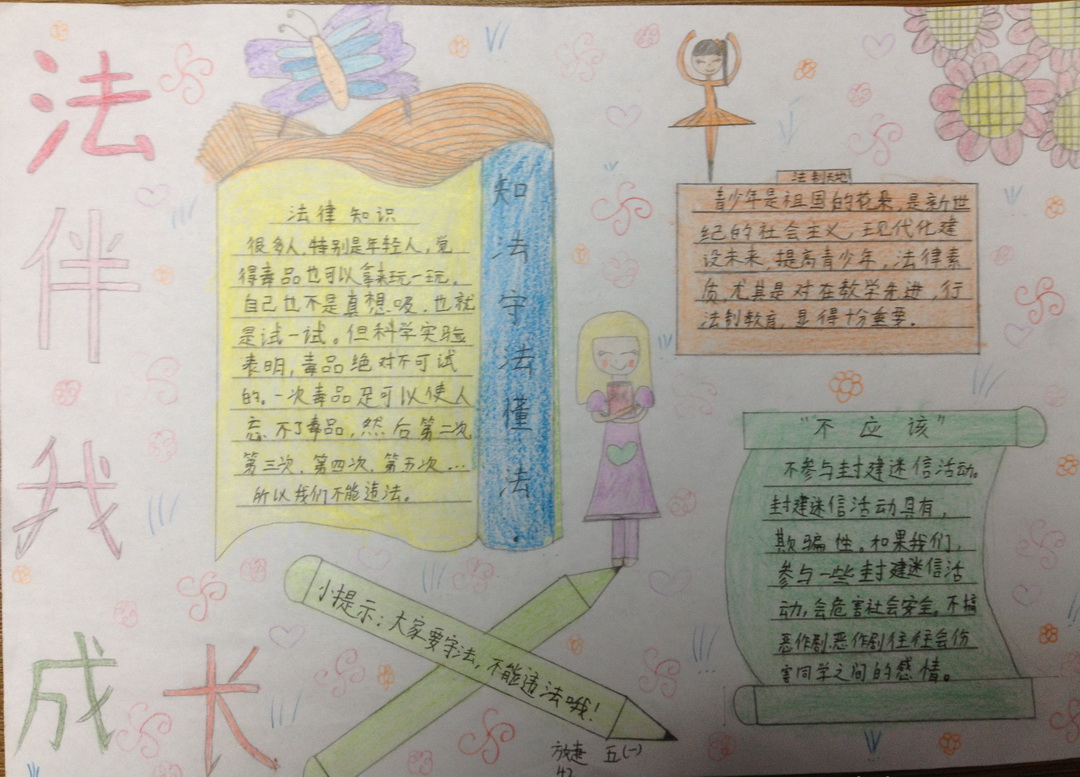 法伴我成长
法律知识
很多人,特别是年轻人,觉
得毒品也可以拿来玩一玩。
自己也不是真想吸,也就
是试一试。但科学实验
表明,毒品绝对不可试
的。一次毒品足可以使人
忘不了毒品,然后第二次
第三次,第四次,第五次...
所以我们不能违法。
知法守法懂法
小提示:大家要守法,不能违法哦!
法制天地
青少年是祖国的花朵,是新世
纪的社会主义,现代化建
设未来,提高青少年,法律素
质,尤其是对在教学先进,行
法制教育,显得十分重要。
“不应该”
不参与封建迷信活动。
封建迷信活动具有,
欺骗性。如果我们,
参与一些封建迷信活
动,会危害社会安全。不搞
恶作剧.恶作剧往往会伤
害同学之间的感情。
五(一)
42